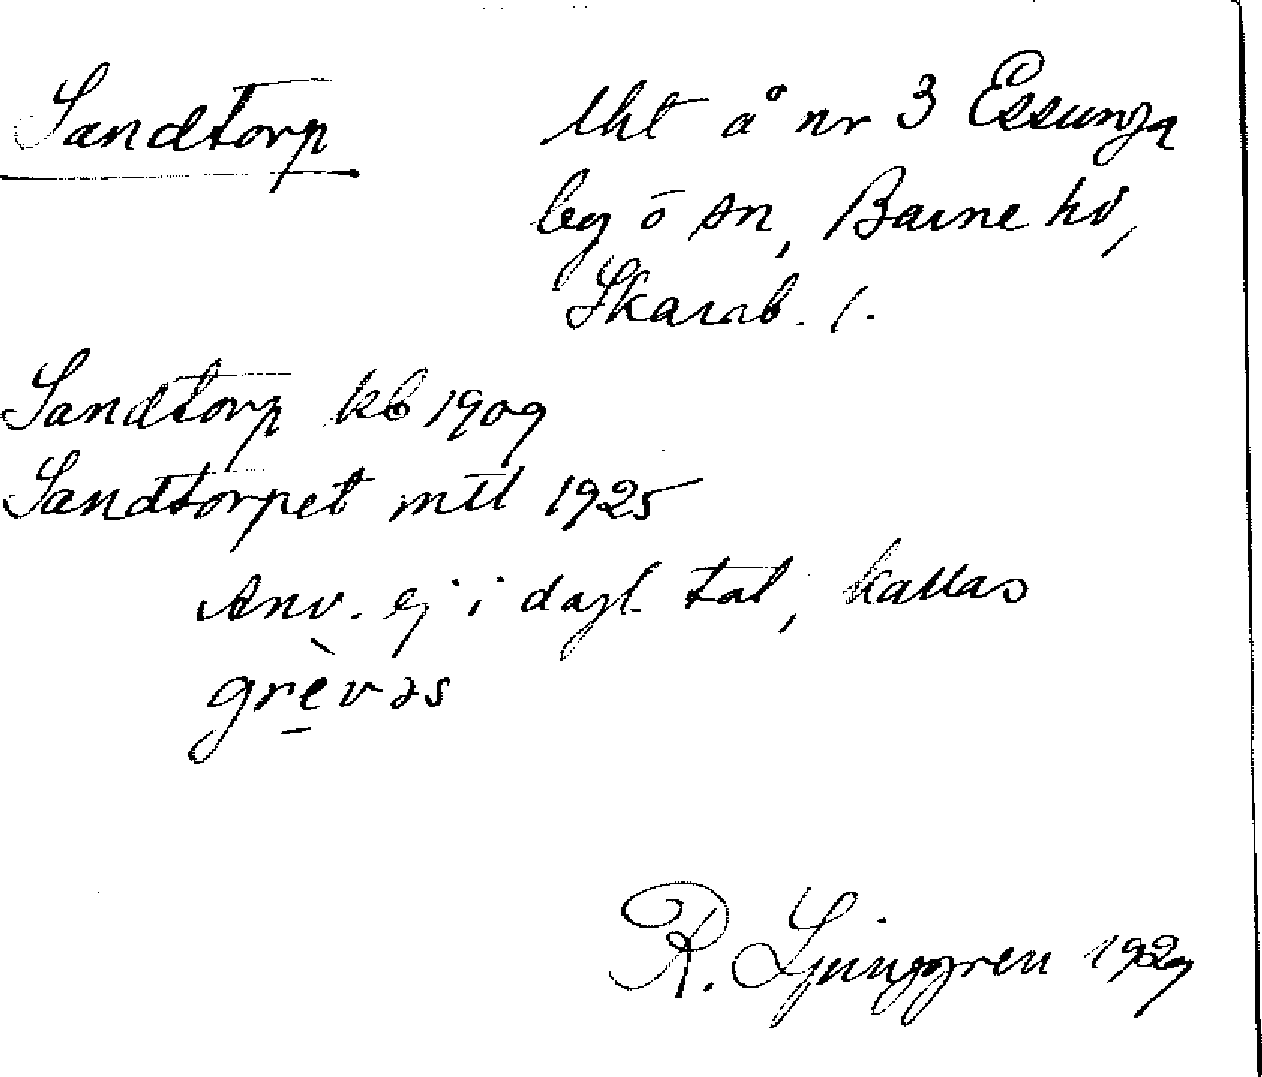 Sandtorp lht å nr 3 Essunga
by o sn, Barne hd,
Skarab. l.
Sandtorp kb 1909
Sandtorpet mtl 1925
Anv. ej i dagl tal, kallas
grèvəs
R. Ljunggren 1929